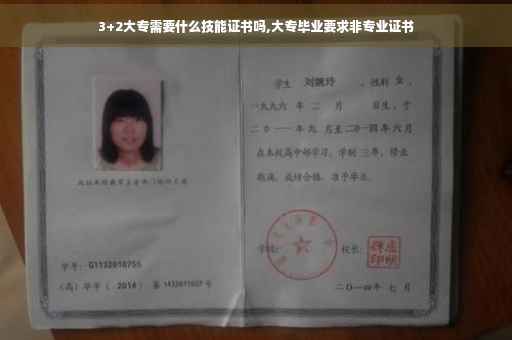 3+2大专需要什么技能证书吗,大专毕业要求非专业证书
学生 刘婉玲 ，性别 女 ，
一九九六 年 二 月 日生，于
二〇一一年九 月至二〇一四年六月
在本校高中部学习，学制 三年，修业
期满，成绩合格，准予毕业。
学号：G1132010755
(高) 毕字 ( 2014 ) 第 1432011027 号
学校：
校长：
二〇一四年 七 月